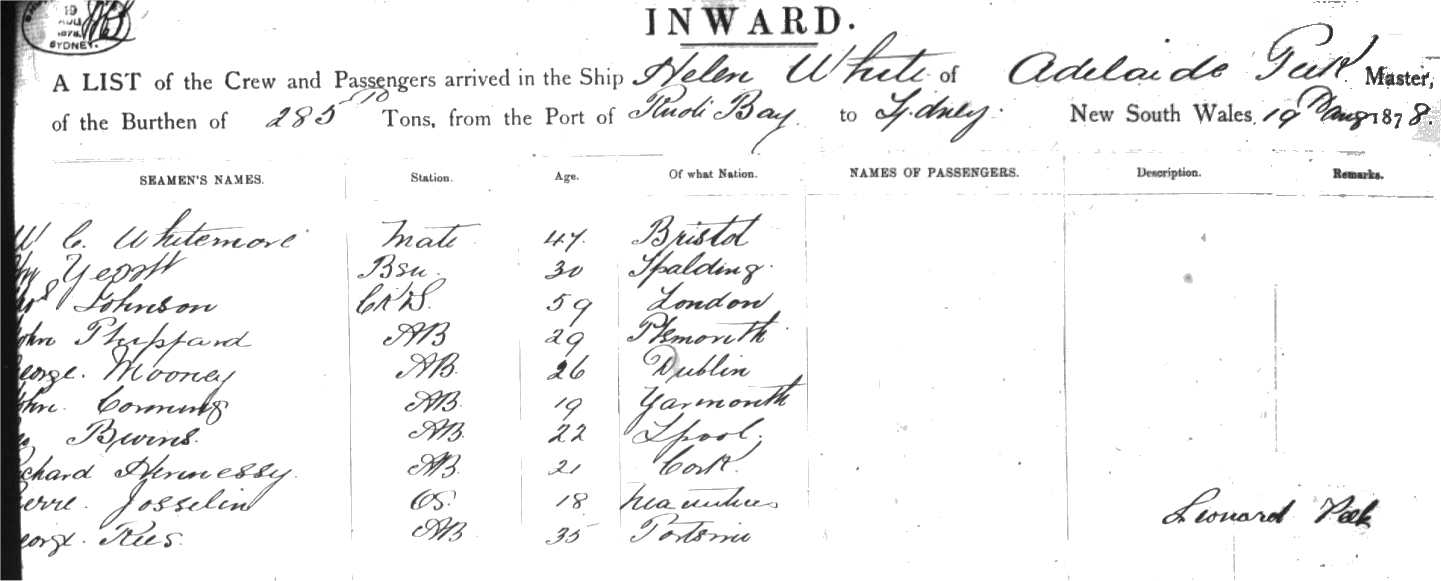 19
AUG
1878
SYDNEY.
INWARD.
A LIST of the Crew and Passengers arrived in the Ship Helen White of Adelaide Peek Master,
of the Burthen of 285 Tons, from the Port of Bay to Sydney. New South Wales, 19 Aug 1878.
SEAMEN'S NAMES. Station. Age. Of what Nation. NAMES OF PASSENGERS. Description. Remarks.
W C. Whitemore Mate 47. Bristol
30 Spalding.
Johnson 59 London
John Sheppard AB 29 Plymouth
George. Mooney AB. 26 Dublin
John. Corning AB. 19 Yarmouth
Burns. AB. 22 Lpool.
Richard Hennessy. AB. 21 Cork.
Pierre. Josselin OS. 18 Mauritius
Leonard Peek
George. Rees. AB 35